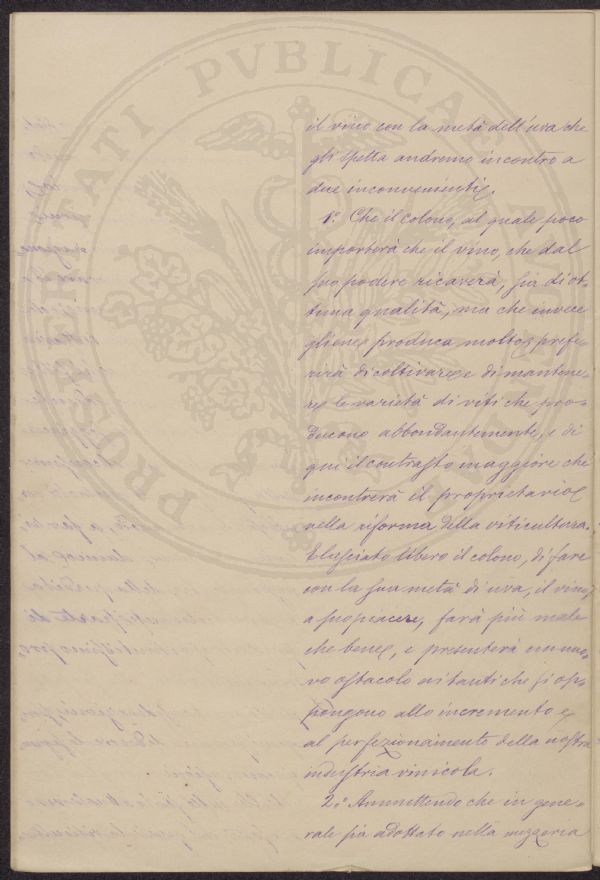 PROSPERITATI PVBLICAE
il vino con la metà dell'uva che
gli spetta andremo incontro a
due inconvenienti.
1.º Che il colono, al quale poco
importerà che il vino, che dal
suo podere ricaverà, sia di ot=
tima qualità, ma che invece
gliene produca molto, prefe=
rirà di coltivare e di mantene=
re le varietà di viti che pro=
ducono abbondantemente, e di
qui il contrasto maggiore che
incontrerà il proprietario
nella riforma della viticultura.
E lasciato libero il colono, di fare
con la sua metà di uva, il vino,
a suo piacere, farà più male
che bene, e presenterà un nuo=
vo ostacolo ai tanti che si op=
pongono allo incremento e
al perfezionamento della nostra
industria vinicola.
2.º Ammettendo che in gene=
rale sia adottato nella mezzeria